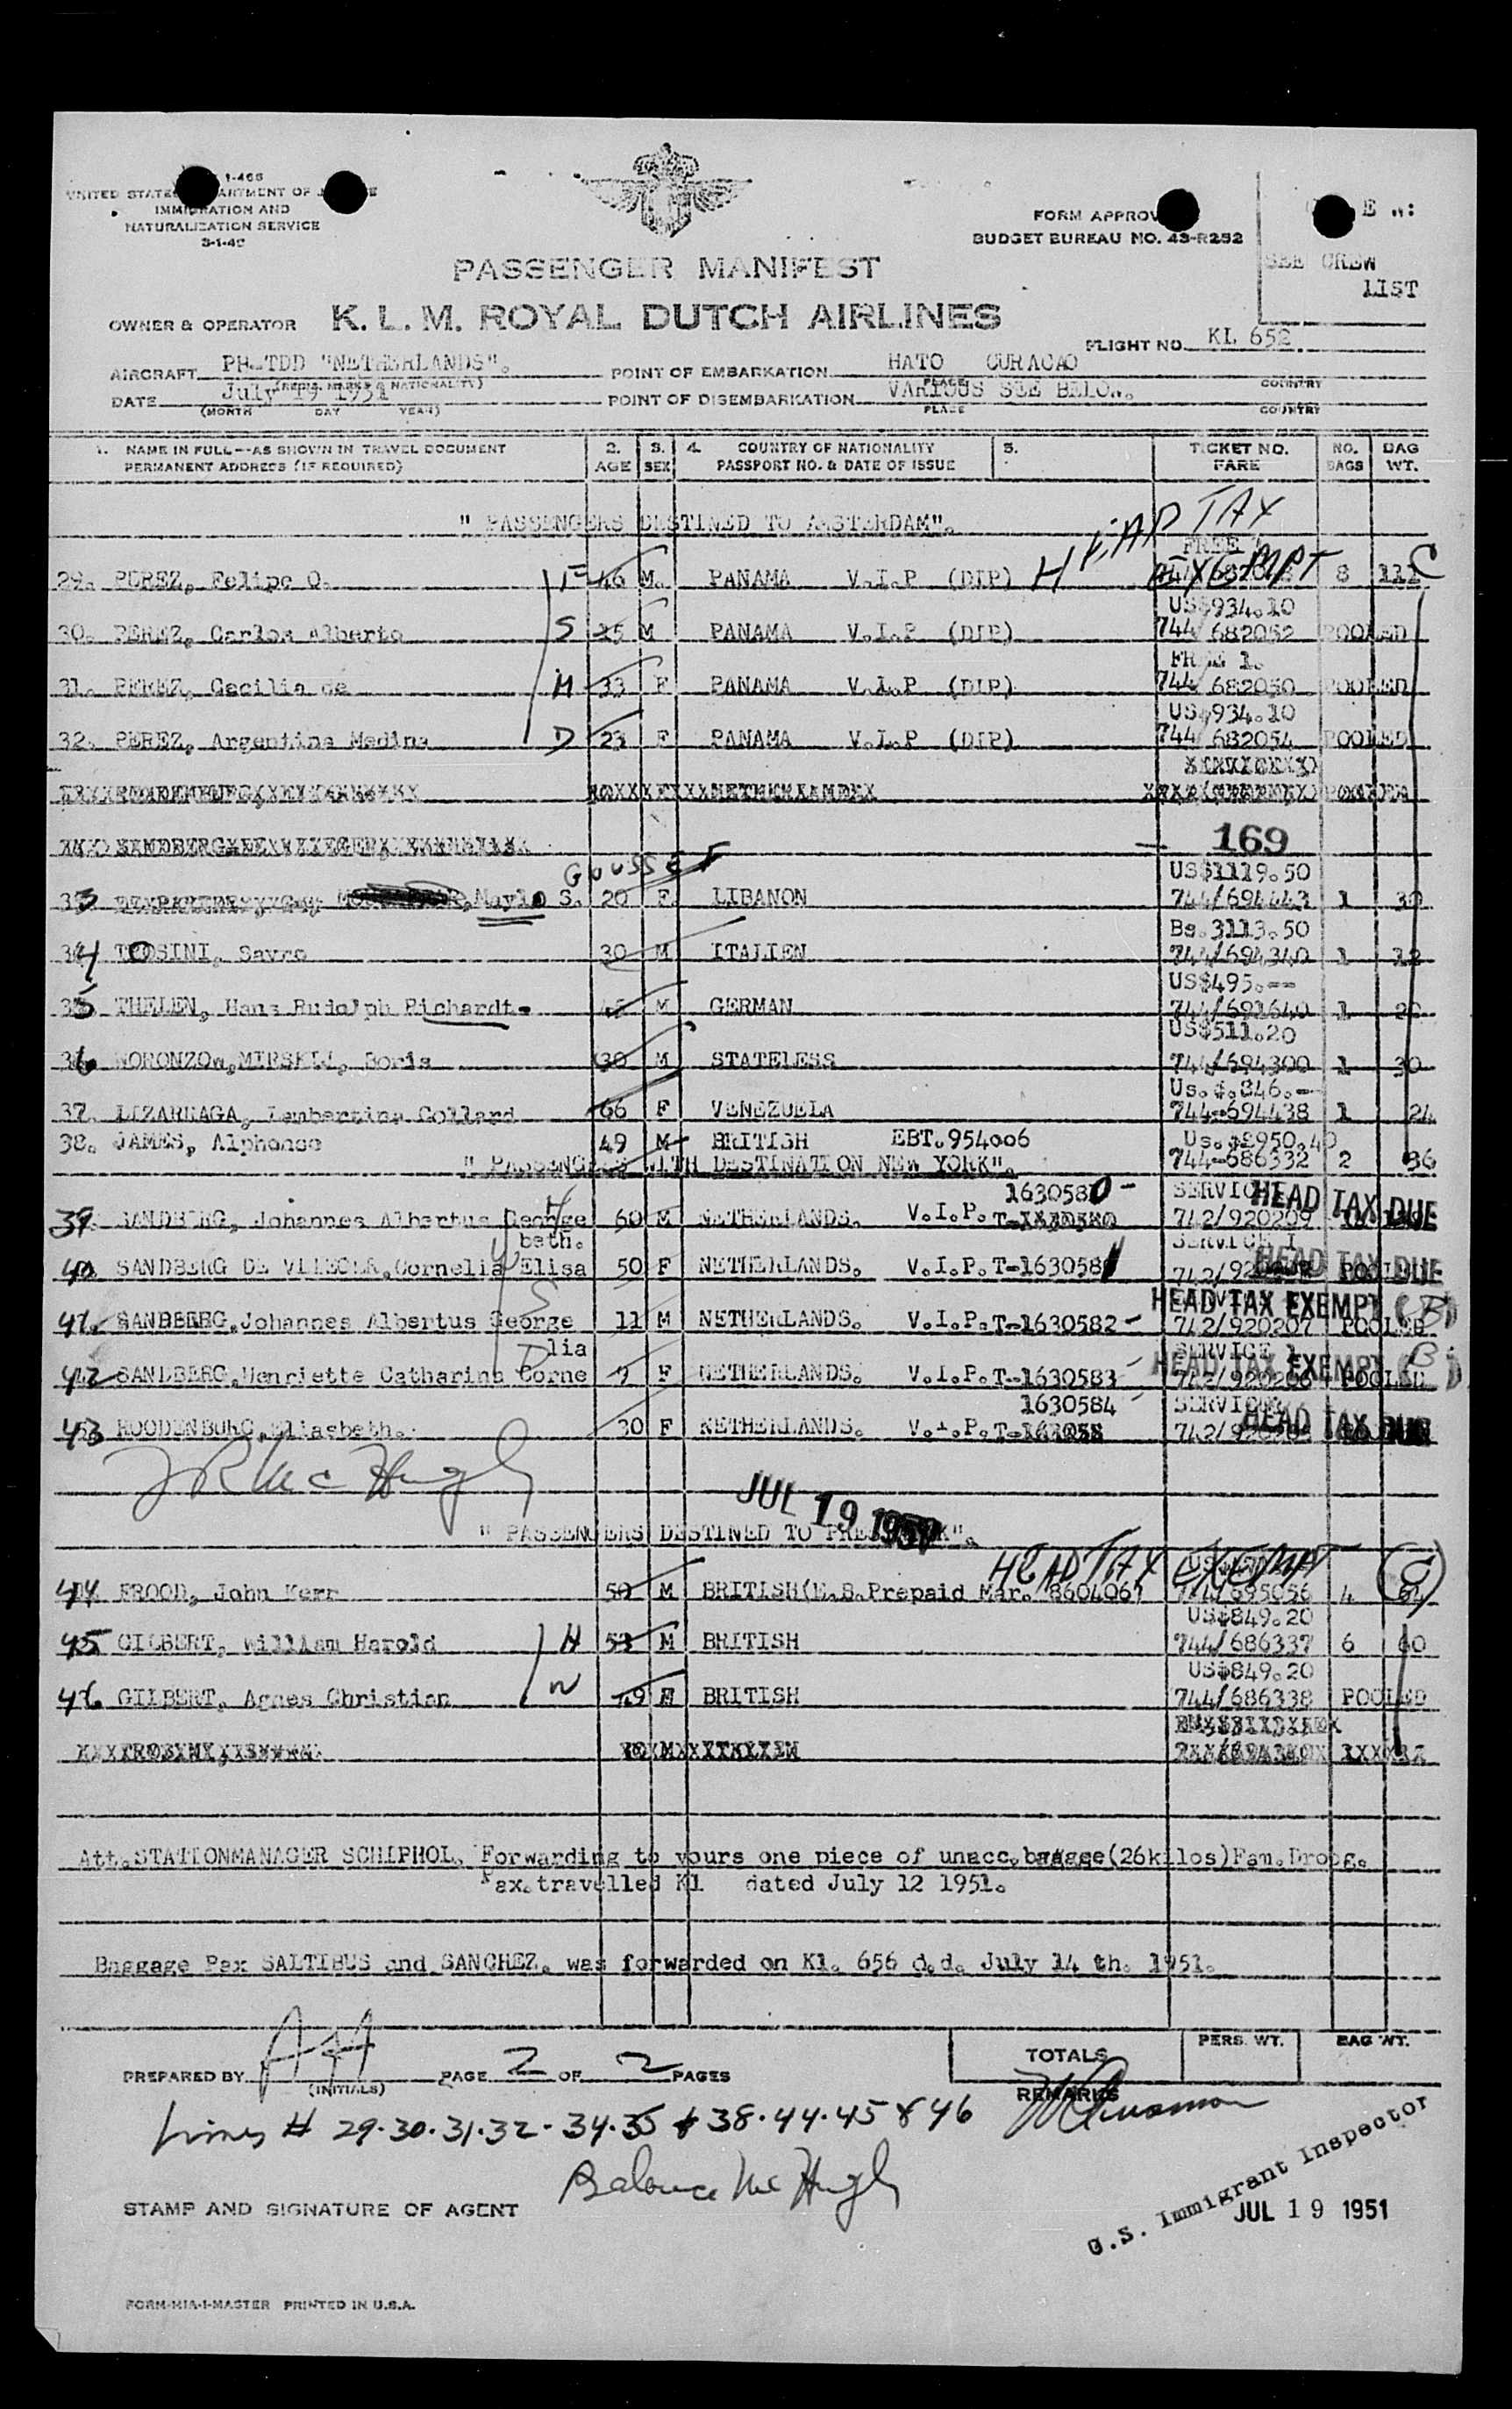 1-466
UNITED STATES DEPARTMENT OF JUSTICE
IMMIGRATION AND
NATURALIZATION SERVICE
FORM APPROV
BUDGET BUREAU NO. 43-R252
SEE CREW
LIST
PASSENGER MANIFEST
OWNER & OPERATOR K. L. M. ROYAL DUTCH AIRLINES
FLIGHT NO. KL 652
AIRCRAFT PH-TDD "NETHERLANDS". POINT OF EMBARKATION HATO CURACAO
(REGIS. MARKS & NATIONALITY) PLACE COUNTRY
DATE July 19 1951 POINT OF DISEMBARKATION VARIOUS SEE BELOW.
(MONTH DAY YEAR) PLACE COUNTRY
1. NAME IN FULL--AS SHOWN IN TRAVEL DOCUMENT 2. 3. 4. COUNTRY OF NATIONALITY 5. TICKET NO. NO. BAG
PERMANENT ADDRESS (IF REQUIRED) AGE SEX PASSPORT NO. & DATE OF ISSUE FARE BAGS WT.
" PASSENGERS DESTINED TO AMSTERDAM".
HEAD TAX
FREE
29. PEREZ, Felipe O. F 46 M. PANAMA V.I.P (DIP) EXEMPT 8 112 C
US$934.10
30. PEREZ, Carlos Alberto S 25 M PANAMA V.I.P (DIP) 744/682052 POOLED
FREE 1.
31. PEREZ, Cecilia de M 33 F PANAMA V.I.P (DIP) 744/682050 POOLED
US$934.10
32. PEREZ, Argentina Medina D 23 F PANAMA V.I.P (DIP) 744/682054 POOLED
169
GOUSSEF
US$1119.50
33 Mayla S. 20 F. LIBANON 744/694443 1 30
Bs.3113.50
34 TOSINI, Savro 30 M ITALIEN 744/694340 1 12
US$495.--
35 THELEN, Hans Rudolph Richardt. 45 M GERMAN 744/691640 1 20
US$511.20
36 WORONZOW,MIRSKIJ, Boris 30 M STATELESS 744/694300 1 30
Us.$.846.--
37. LIZARRAGA, Lambertina Collard 66 F VENEZUELA 744-694438 1 24
38. JAMES, Alphonse 49 M BRITISH EBT.954006 Us.$950.40
744-686332 2 36
" PASSENGERS WITH DESTINATION NEW YORK".
1630580 - SERVICE HEAD TAX DUE
39. SANDBERG, Johannes Albertus George H 60 M NETHERLANDS. V.I.P. T- 742/920209
beth.
40 SANDBERG DE VLIEGER,Cornelia Elisa W 50 F NETHERLANDS. V.I.P. T-1630581 HEAD TAX DUE
HEAD TAX EXEMPT (B)
41. SANDBERG,Johannes Albertus George S 11 M NETHERLANDS. V.I.P. T-1630582 - 742/920207 POOLED
lia SERVICE 1
42 SANDBERG,Henriette Catharina Corne D 9 F NETHERLANDS. V.I.P. T-1630583 - HEAD TAX EXEMPT (B) POOLED
1630584 - SERVICE
43 ROODENBURG,Eliasbeth. 30 F NETHERLANDS. V.I.P. T- HEAD TAX DUE
JR McHugh
JUL 19 1951
" PASSENGERS DESTINED TO PRESTWICK".
HEAD TAX EXEMPT (C)
44 FROOD, John Kerr 50 M BRITISH(E.B.Prepaid Mar. 8604061 744/695056 4
US$849.20
45 GILBERT, William Harold H 53 M BRITISH 744/686337 6 60
US$849.20
46 GILBERT, Agnes Christian W 49 F BRITISH 744/686338 POOLED
Att.STATIONMANAGER SCHIPHOL. Forwarding to yours one piece of unacc.baggage(26kilos)Fam.Droog.
Pax.travelled Kl dated July 12 1951.
Baggage Pax SALTIBUS and SANCHEZ. was forwarded on Kl. 656 d.d. July 14 th. 1951.
PREPARED BY AH PAGE 2 OF 2 PAGES
(INITIALS)
TOTALS PERS. WT. BAG WT.
REMARKS
Lines # 29.30.31.32.34.35 & 38.44.45 & 46
Balance McHugh
STAMP AND SIGNATURE OF AGENT
U.S. Immigrant Inspector
JUL 19 1951
FORM-HIA-1-MASTER PRINTED IN U.S.A.